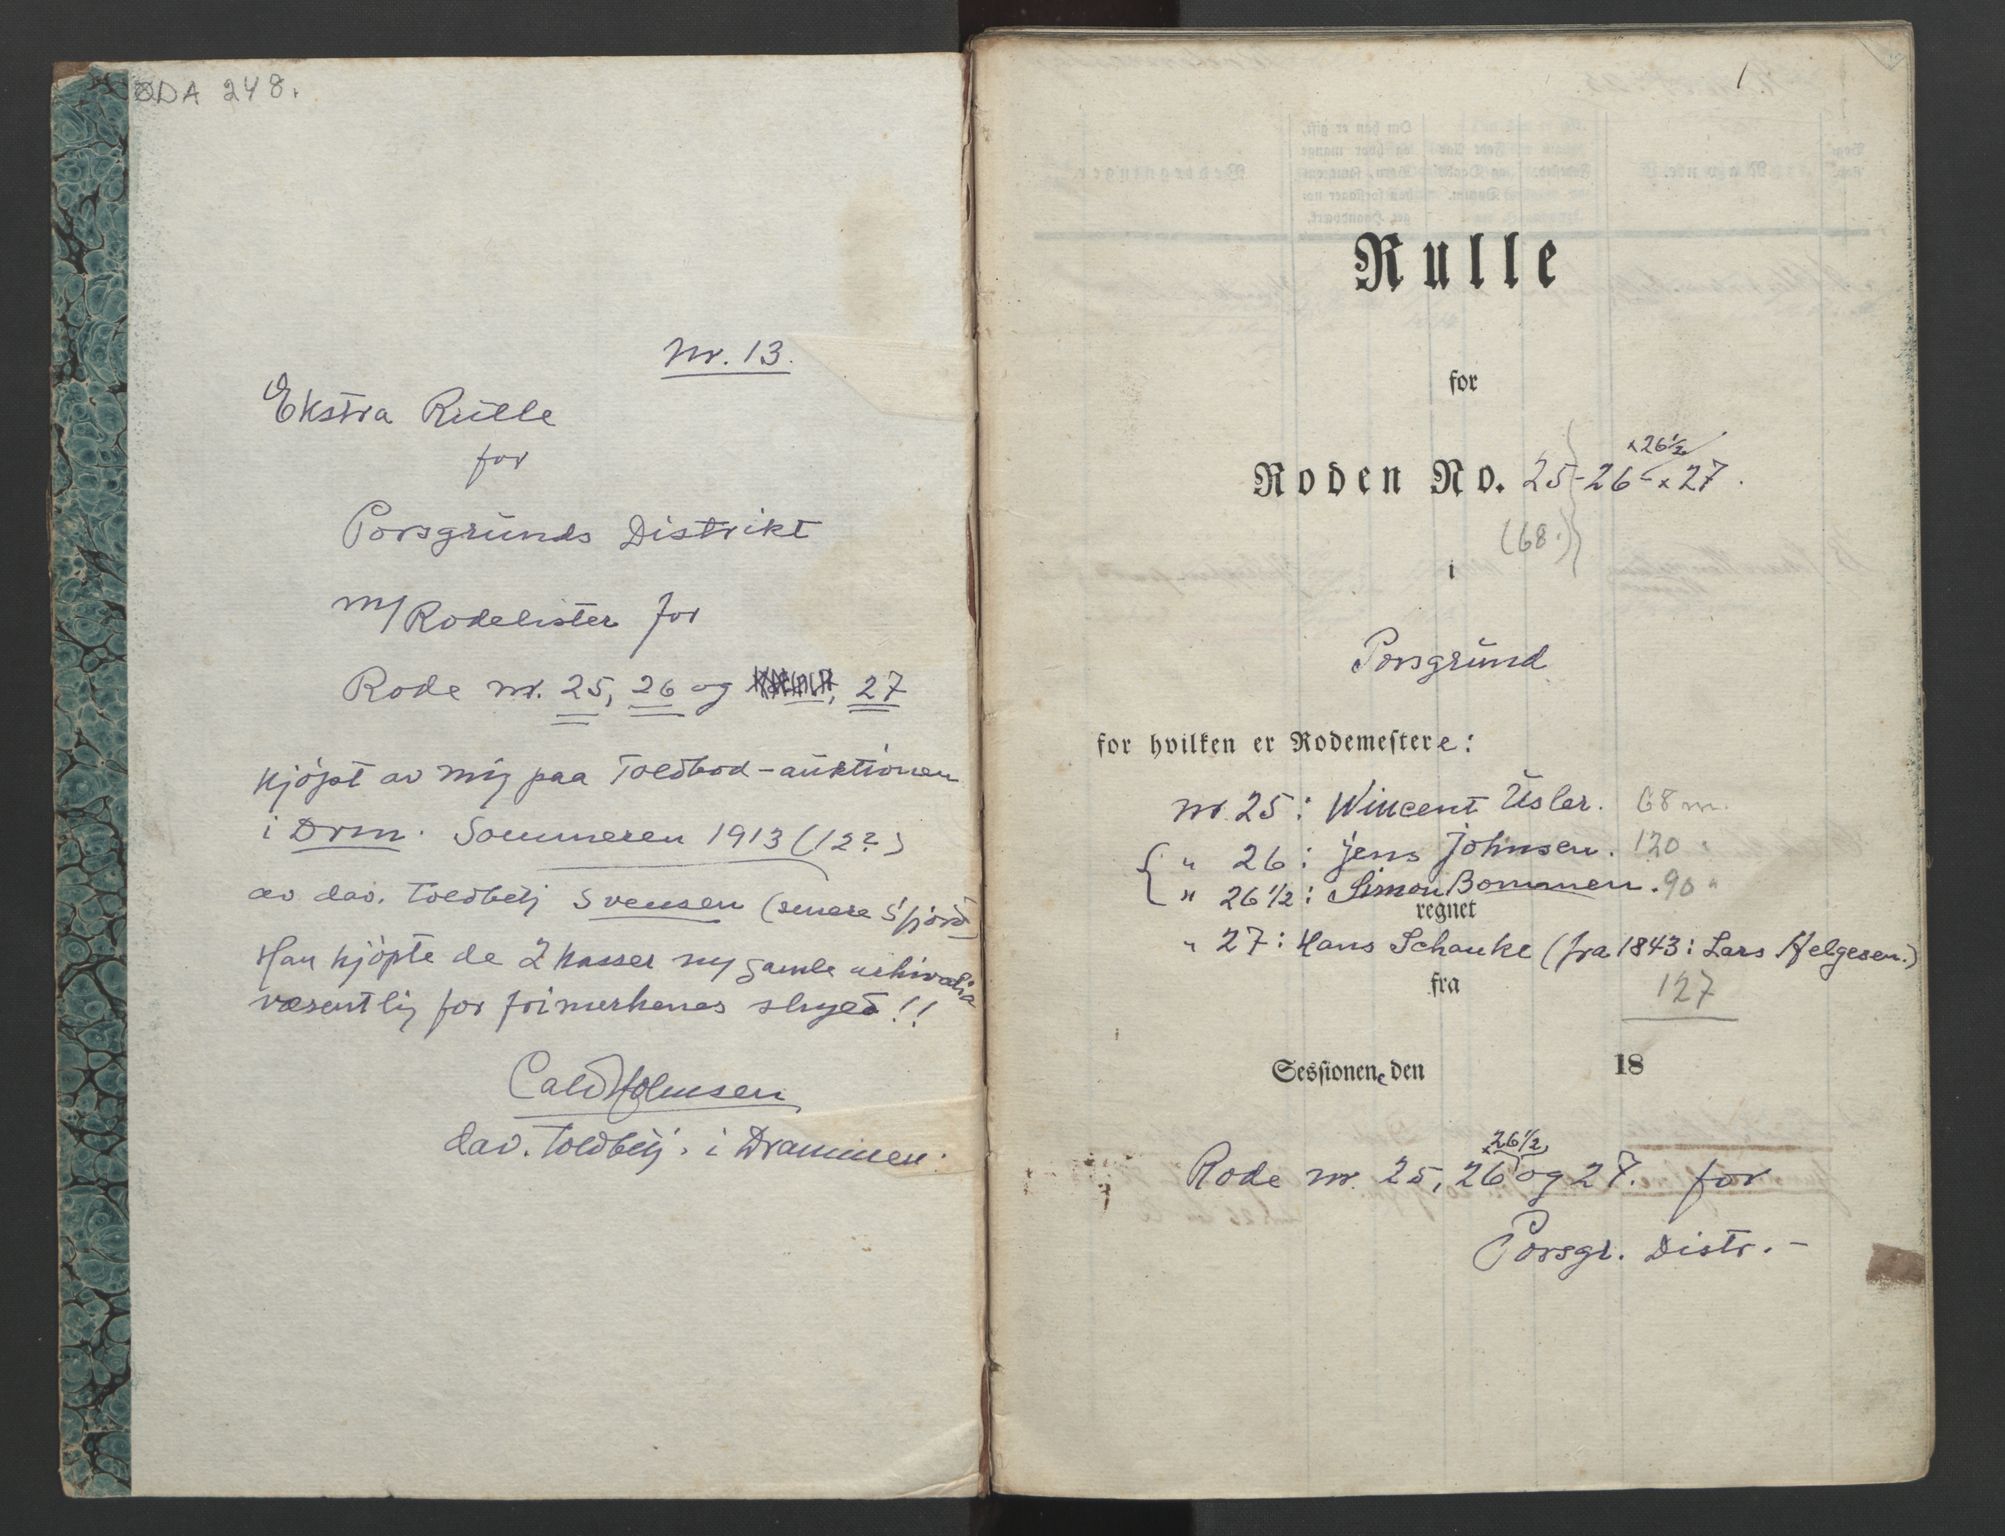 ØDA 248.
Nr. 13.
Ekstra Rulle
for
Porsgrunds Distrikt
m/Rodelister for
Rode nr. 25, 26 og 27
kjöpt av mig paa Toldbod-auktionen
i Drm. Sommeren 1913 (12?)
av dav. Toldbetj Svensen (senere Sfjord)
Han kjöpte de 2 kasser m/ gamle arkivalia
væsentlig for frimerkenes skyld!!
Cald Holmsen
dav. Toldbetj. i Drammen.
1
Rulle
for
× 26½
Roden No. 25-26- × 27.
(68.)
i
Porsgrund
for hvilken er Rodemestere:
nr. 25: Wincent Usler. 68 m.
" 26: Jens Johnsen. 120 "
" 26½: Simon Bommen. 90 "
regnet
" 27: Hans Schanke (fra 1843: Lars Helgesen.)
fra 127
Sessionene den 18
× 26½
Rode nr. 25, 26 og 27. for
Porsgr. Distr. -